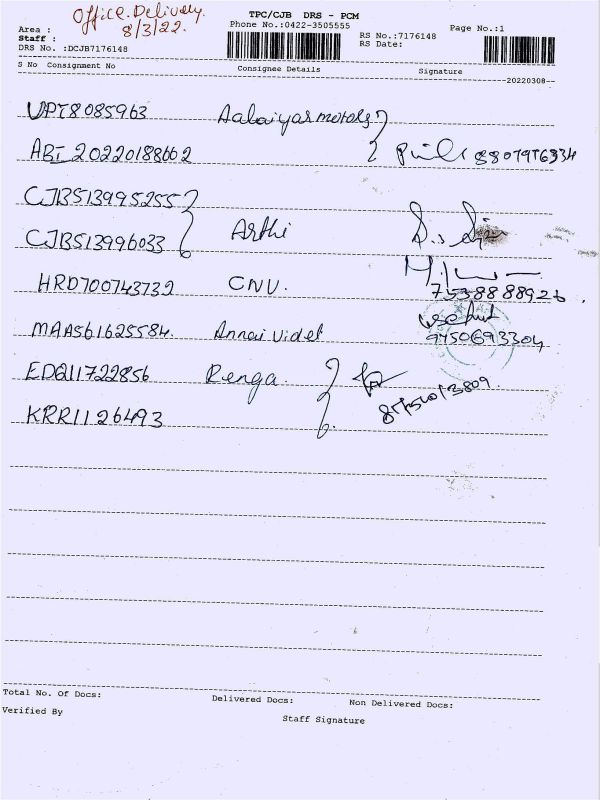 Office Delivery.
8/3/22.
TPC/CJB DRS - PCM
Phone No.:0422-3505555
Page No.:1
Area :
Staff :
RS No.:7176148
DRS No. :DCJB7176148
RS Date:
S No Consignment No Consignee Details Signature
20220308
UPT8085963 Aalaiyarmotors
ABI 20220188602 8807976334
CJB513995255
CJB513996033 Arthi
HRD700743732 CNV. 7538888926
MAA561625584. Annai videl
9750693304
EDQ11722856 Renga.
KRR1126493
Total No. Of Docs: Delivered Docs: Non Delivered Docs:
Verified By Staff Signature